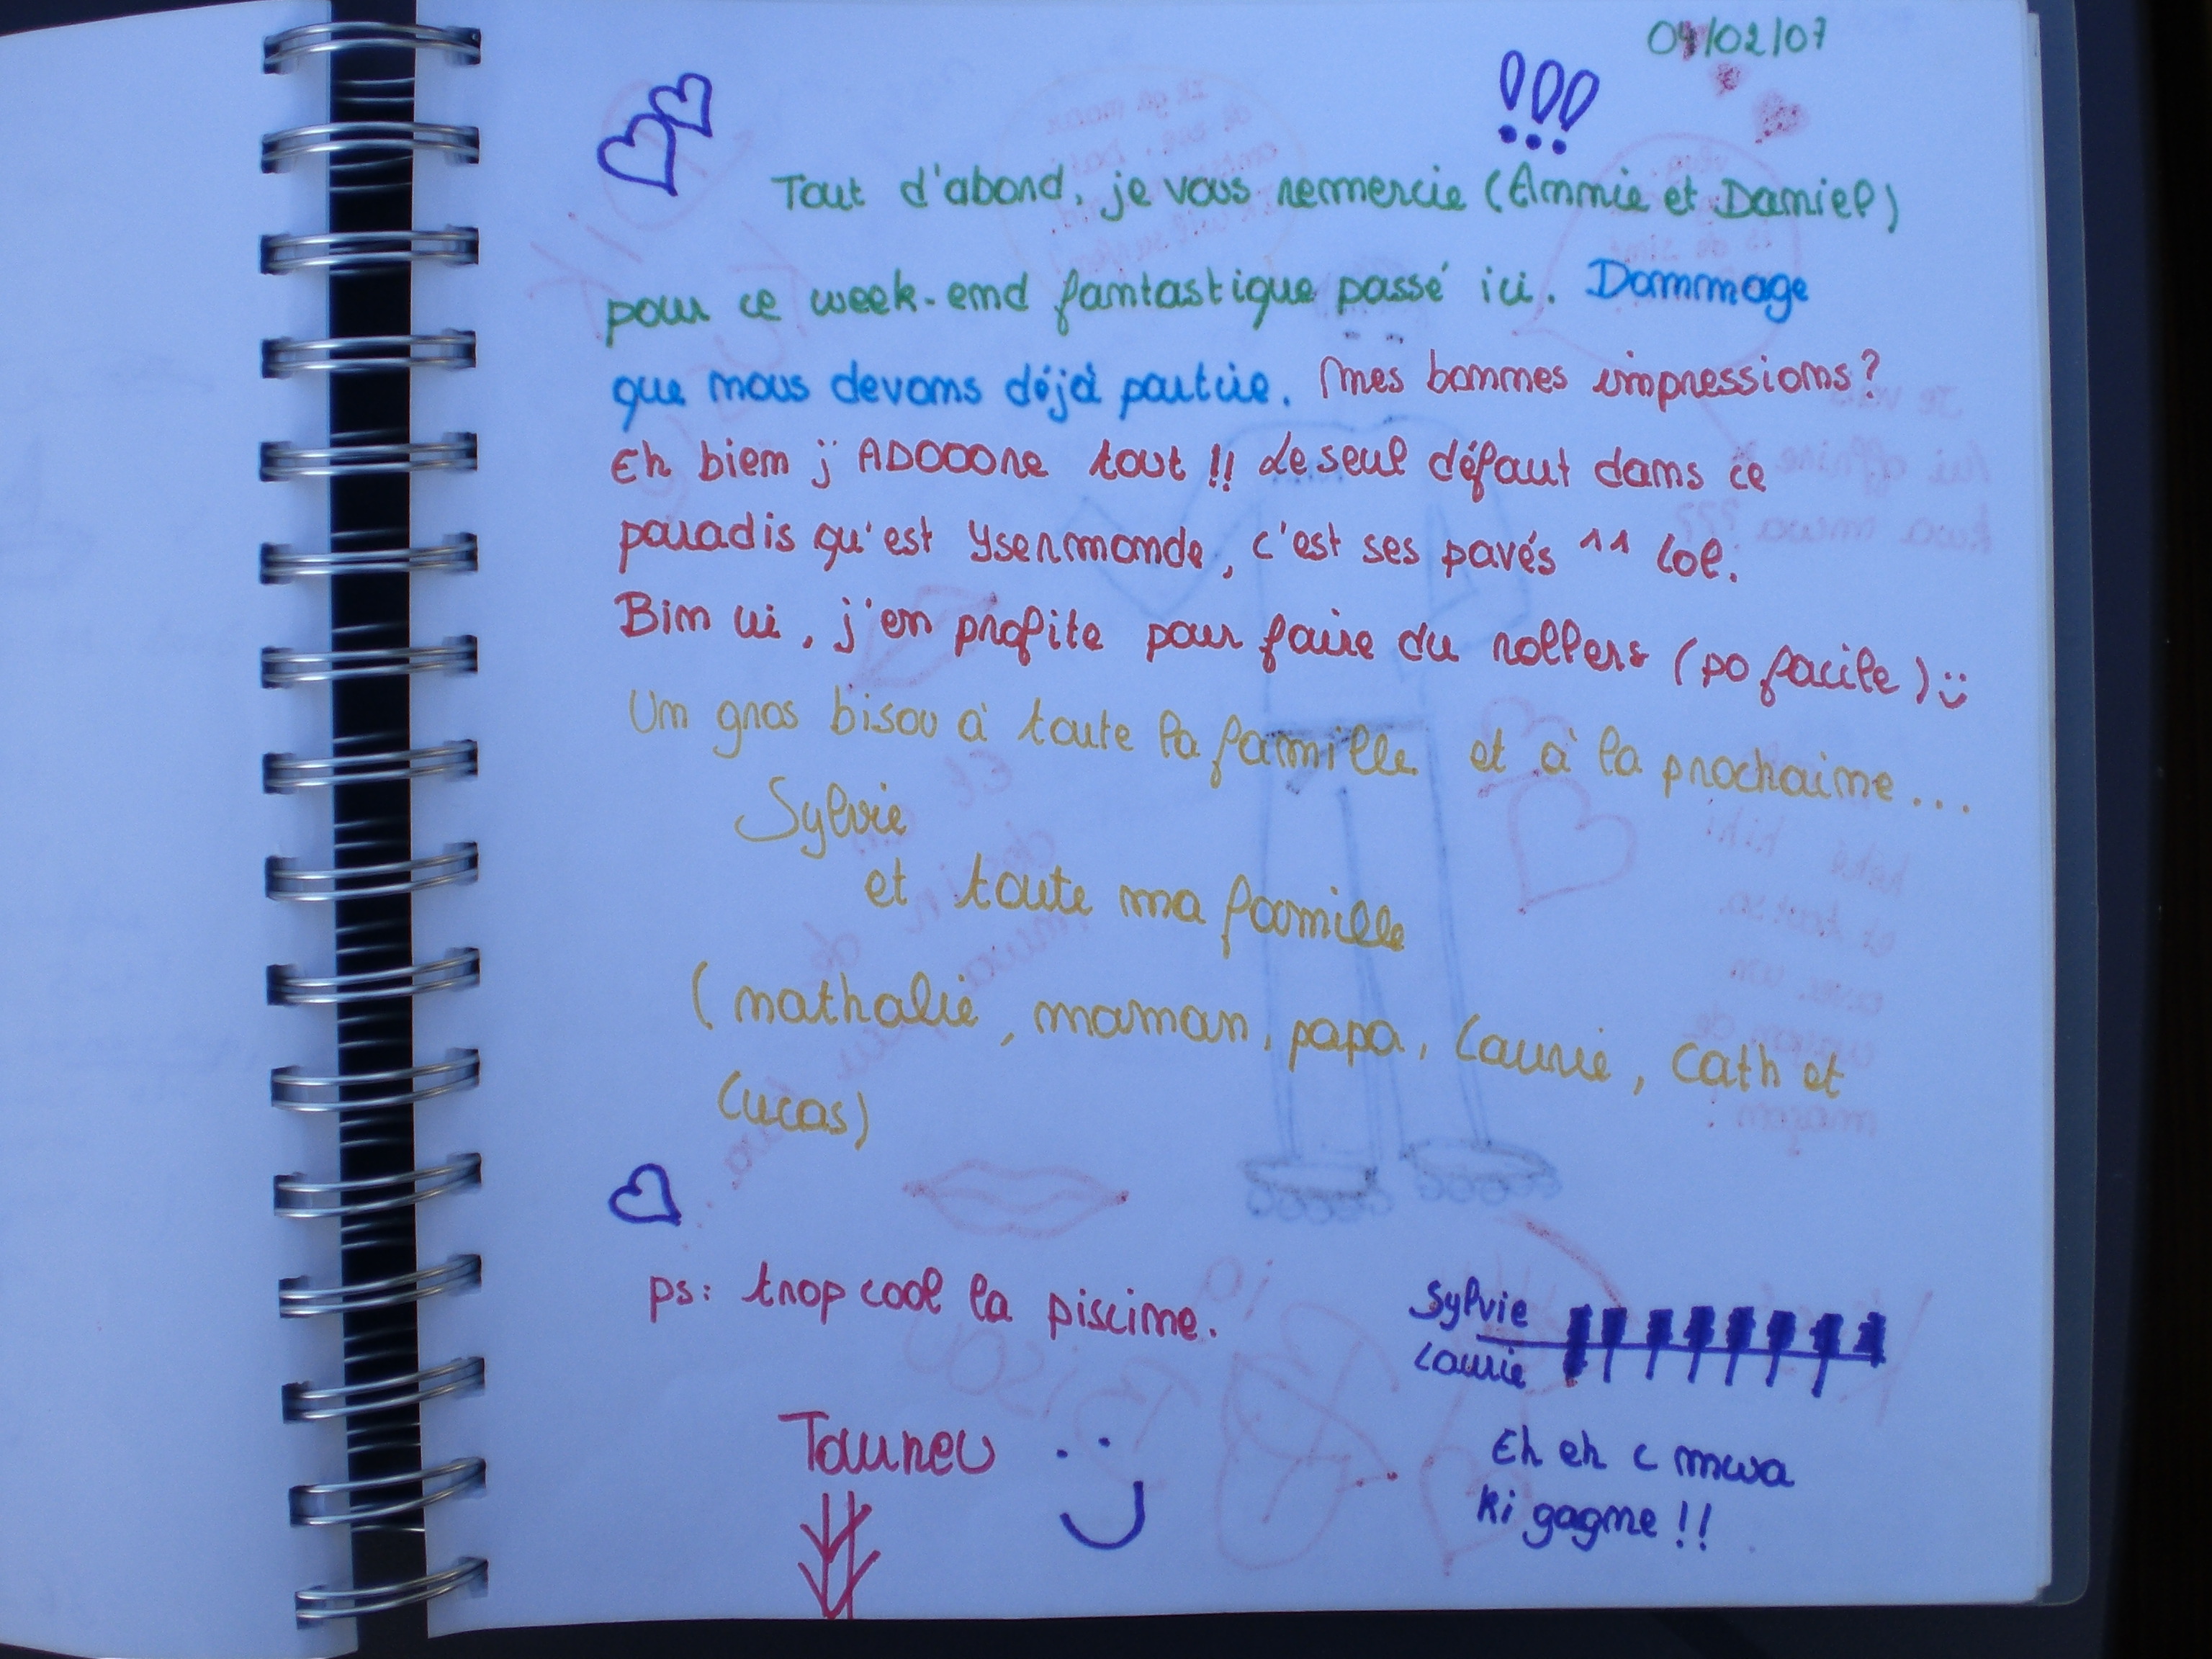 04/02/07
!!!
Tout d'abord, je vous remercie (Annie et Daniel)
pour ce week-end fantastique passé ici. Dommage
que nous devons déjà partir. Mes bonnes impressions?
Eh bien j'ADOOORe tout !! Le seul défaut dans ce
paradis qu'est Ysenmonde, c'est ses pavés ^^ lol.
Bin ui, j'en profite pour faire du rollers (po facile) :)
Un gros bisou à toute la famille et à la prochaine...
Sylvie
et toute ma famille
(nathalie, maman, papa, Laurie, Cath et
Lucas)
ps: trop cool la piscine.
Sylvie
Laurie
Tourneu
Eh eh c mwa
ki gagne !!